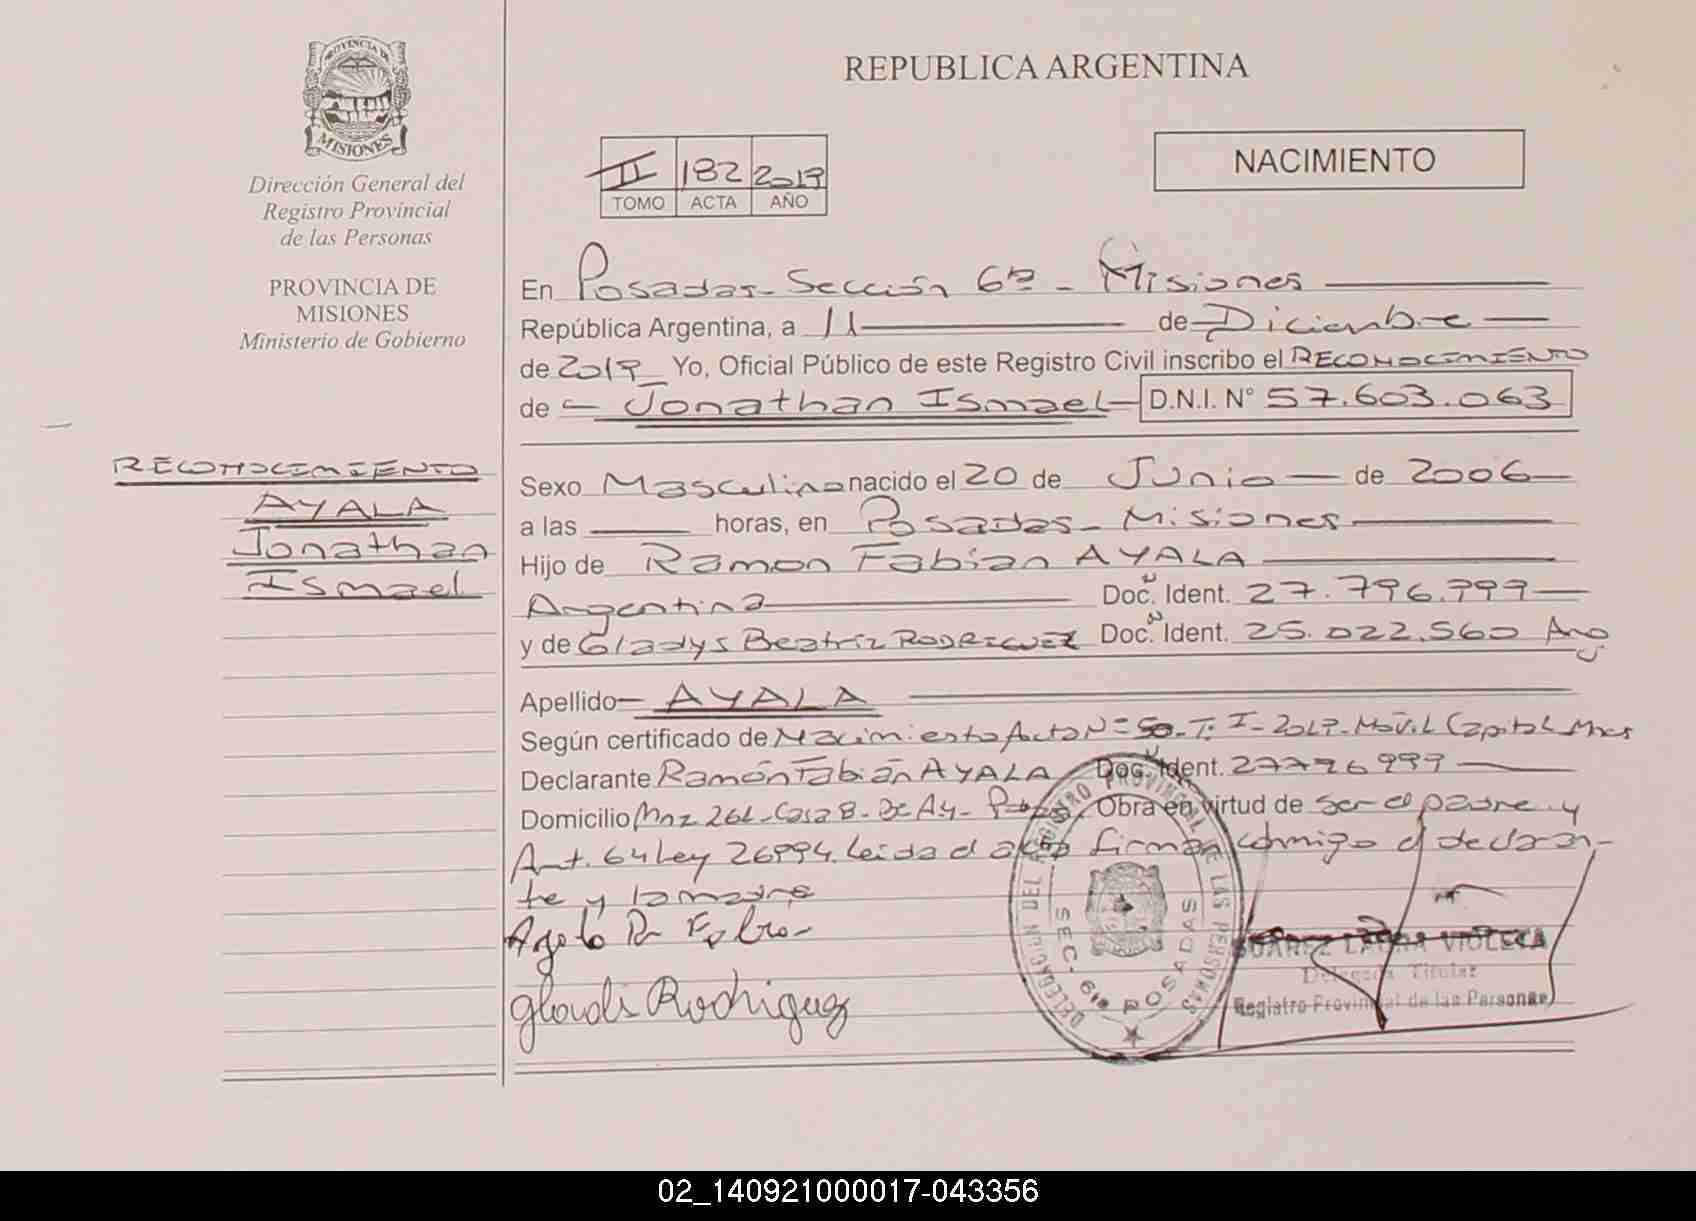 PROVINCIA DE
MISIONES
Dirección General del
Registro Provincial
de las Personas
PROVINCIA DE
MISIONES
Ministerio de Gobierno
RECONOCIMIENTO
AYALA
Jonathan
Ismael
REPUBLICA ARGENTINA
II 182 2019
TOMO ACTA AÑO
NACIMIENTO
En Posadas - Sección 6ª - Misiones
República Argentina, a 11 de Diciembre
de 2019 Yo, Oficial Público de este Registro Civil inscribo el RECONOCIMIENTO
de Jonathan Ismael D.N.I. N° 57.603.063
Sexo Masculino nacido el 20 de Junio de 2006
a las horas, en Posadas - Misiones
Hijo de Ramon Fabian AYALA
Argentina Doc. Ident. 27.796.999
y de Gladys Beatriz RODRIGUEZ Doc. Ident. 25.022.560 Arg
Apellido AYALA
Según certificado de Nacimiento Acta N= 50 - T. I - 2019 - Móvil Capital Mnes
Declarante Ramón Fabián AYALA Doc. Ident. 27796999
Domicilio Mnz 261 - Casa 8 - Obra en virtud de ser el padre y
Art. 64 Ley 26994. Leida el acta firman conmigo el declaran-
te y la madre
Gladis Rodriguez
DELEGACION DEL REGISTRO PROVINCIAL DE LAS PERSONAS
SEC. 6ta POSADAS
SUAREZ LAURA VIOLETA
Delegada Titular
Registro Provincial de las Personas
02_140921000017-043356